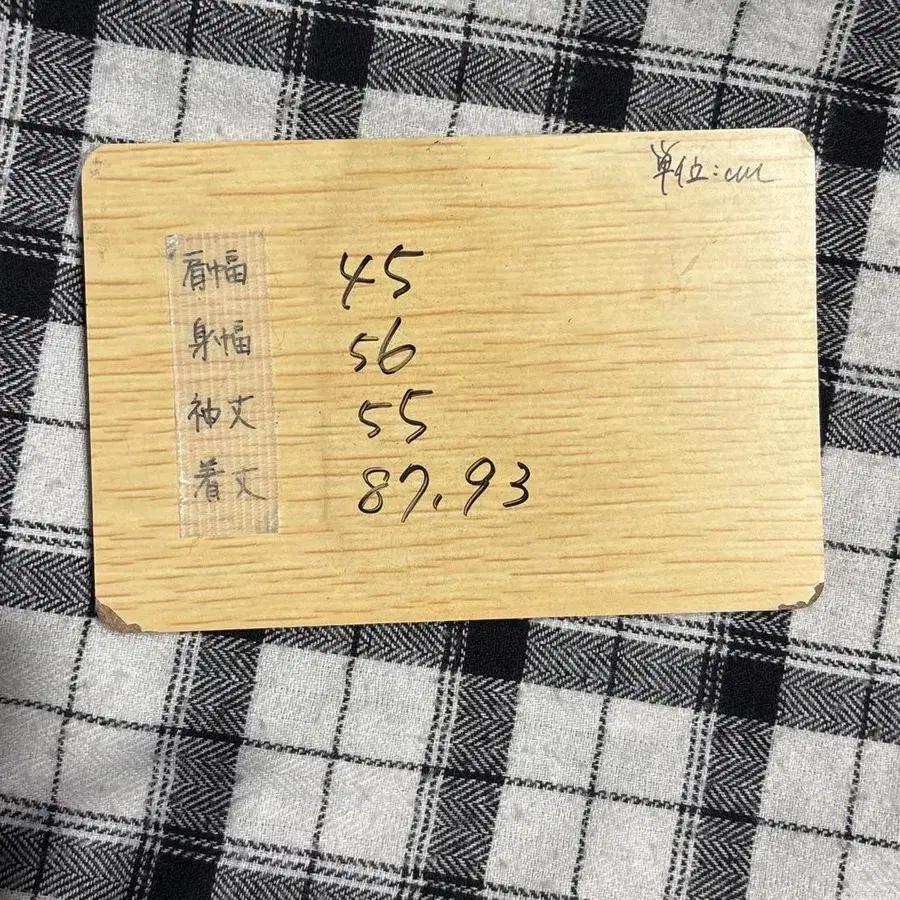 単位:cm
肩幅 45
身幅 56
袖丈 55
着丈 87.93